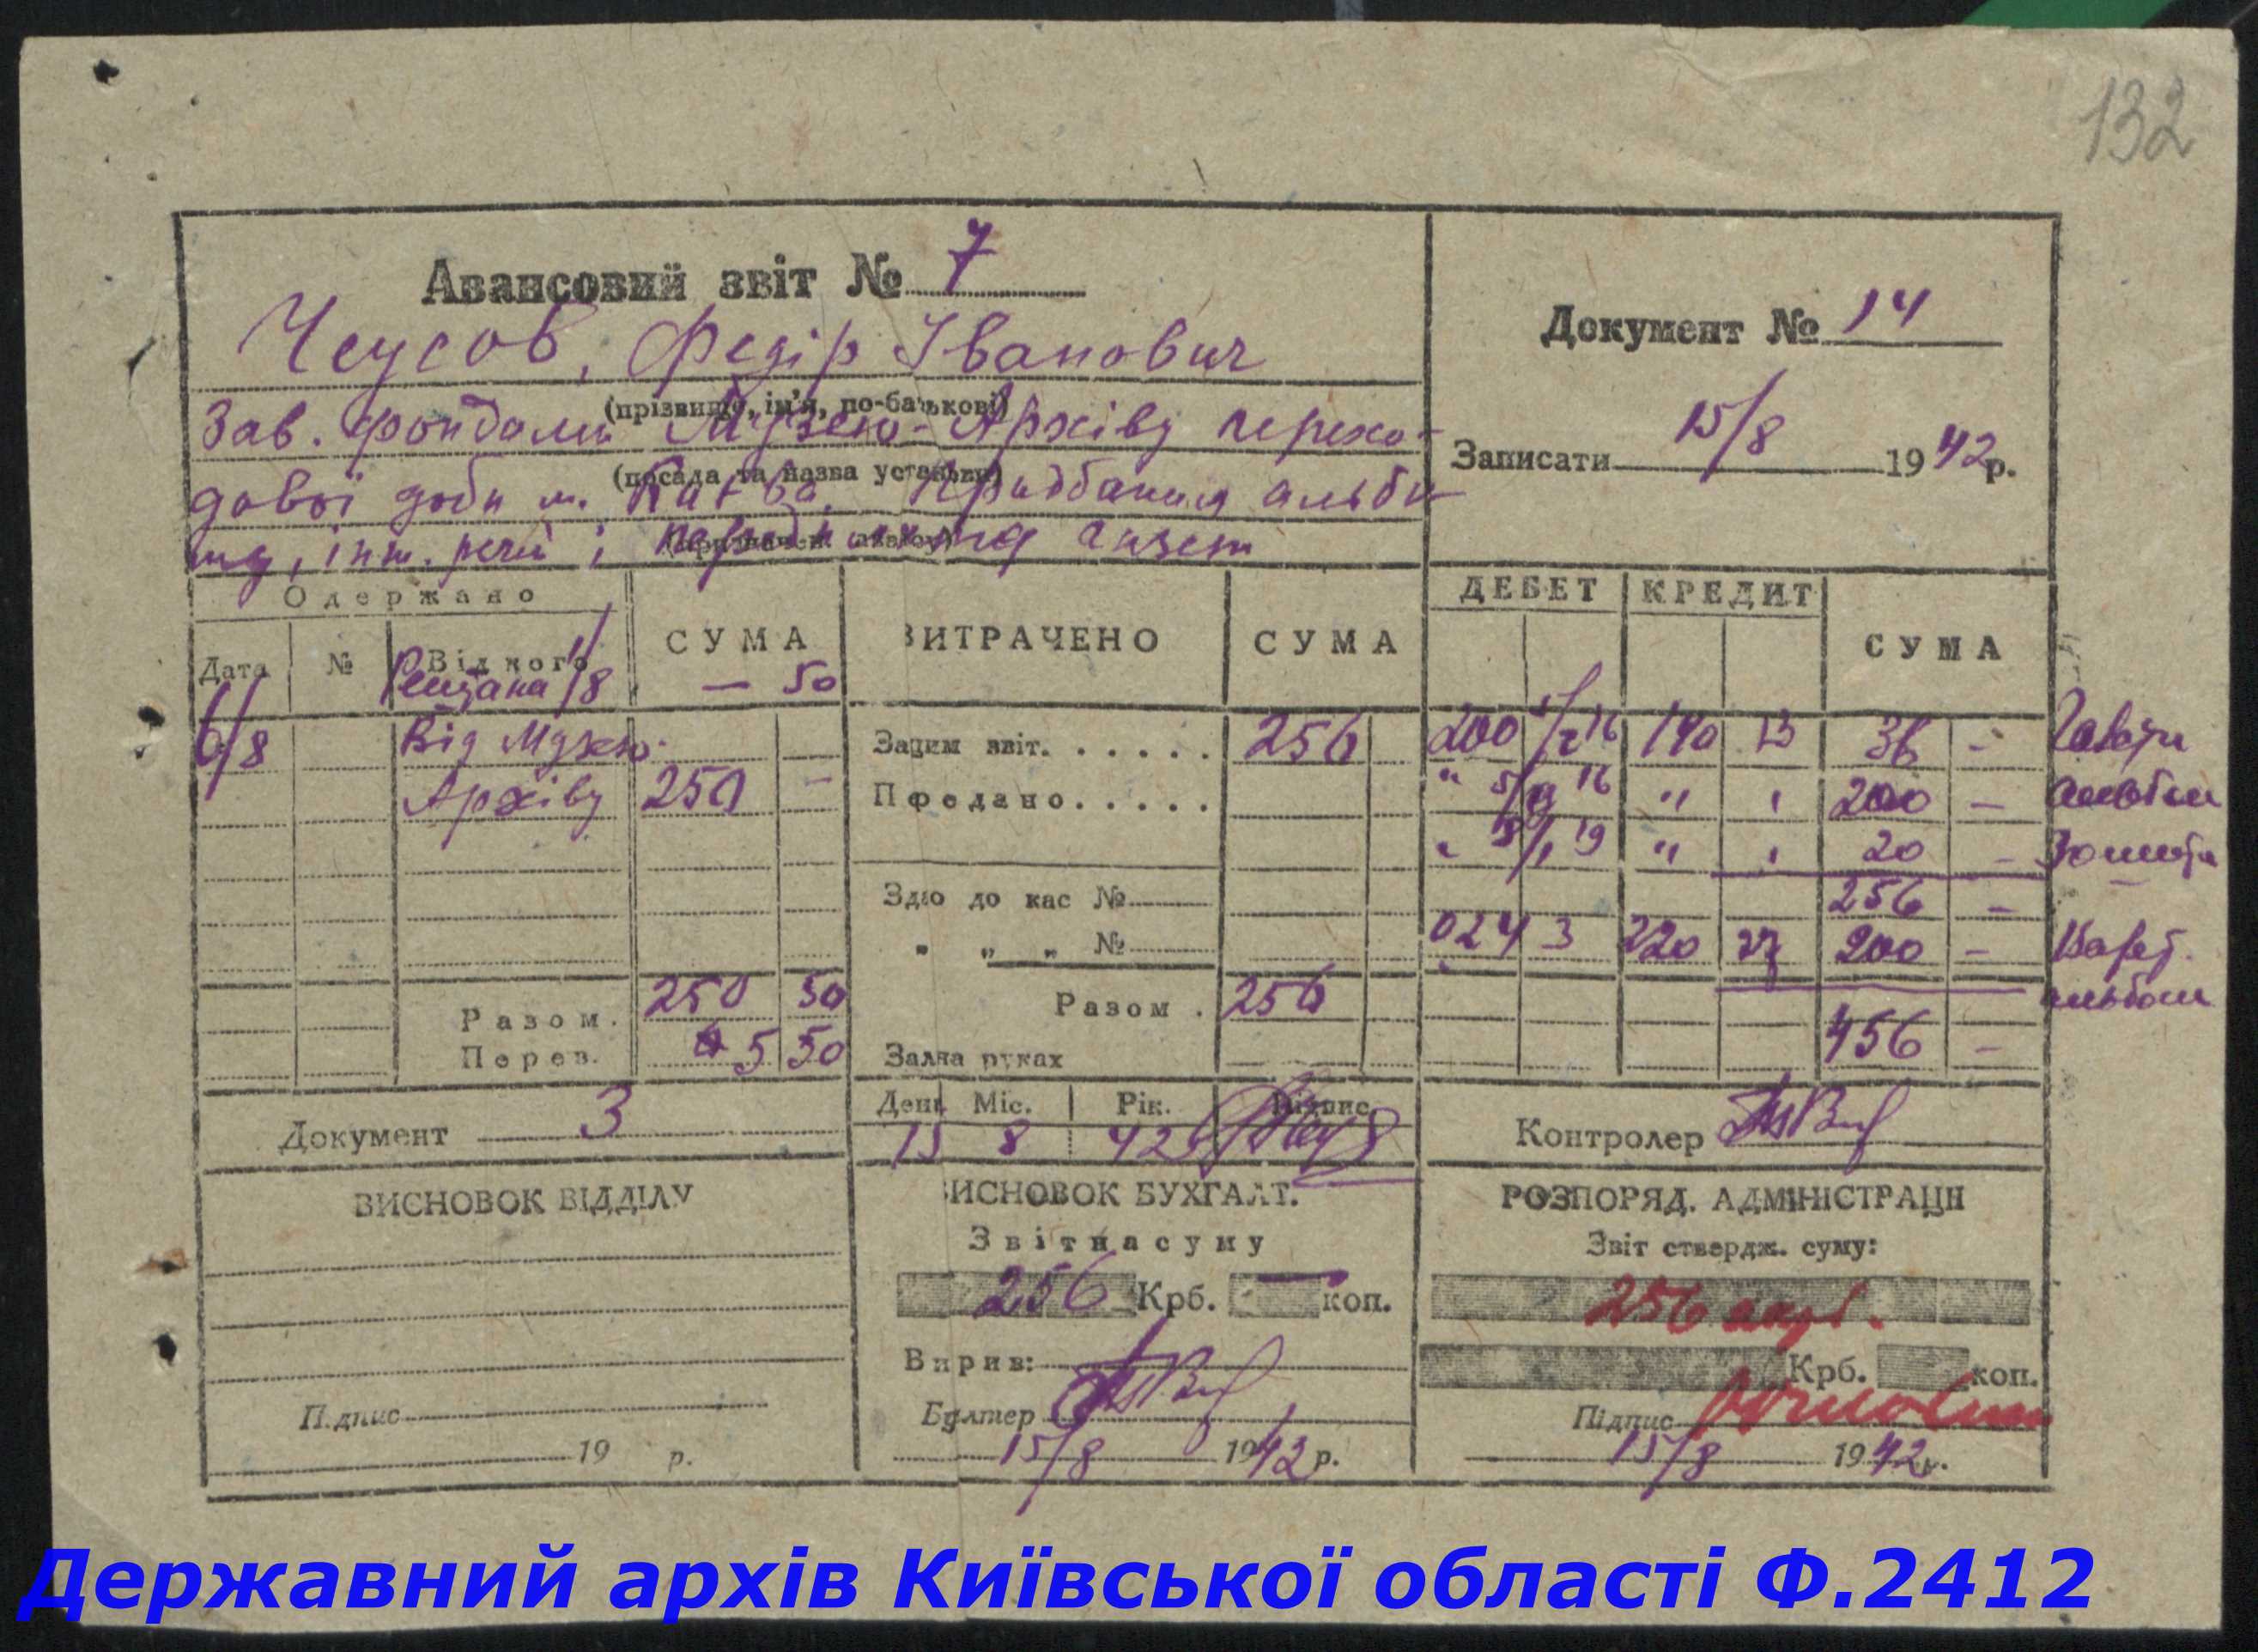 132
Авансовий звіт № 7
Чеусов, Федір Іванович
(прізвище, ім'я, по-батькові)
Зав. фондами Музею-Архіву перехо-
(посада та назва установи)
дової доби м. Києва. Придбання альбо
му, інш. речи і газет
Документ № 14
Записати 15/8 1942р.
Одержано
Дата № Від кого СУМА
Решта на 1/8 — 50
6/8 Від Музею-
Архіву 250 —
Разом. 250 50
Перев. 5 50
Документ 3
ВИТРАЧЕНО СУМА
Зацим звіт. . . . . . 256
Передано. . . . .
Здно до кас № 
" " " №
Разом . 256
Зална руках
День Міс. Рік. Підпис
15 8 42
ДЕБЕТ КРЕДИТ СУМА
200 16 190 13 36 — Газети
" 16 " " 200 — альбом
" 19 " " 20 — Зошити
256 —
024 3 220 27 200 —
альбом
456 —
Контролер
ВИСНОВОК ВІДДІЛУ
П.дпис
19 р.
ВИСНОВОК БУХГАЛТ.
Звіт на суму
256 Крб. — коп.
Вирив:
Бултер
15/8 1942р.
РОЗПОРЯД. АДМІНІСТРАЦІЇ
Звіт ствердж. суму:
256 карб.
Крб. коп.
Підпис
15/8 1942р.
Державний архів Київської області Ф.2412